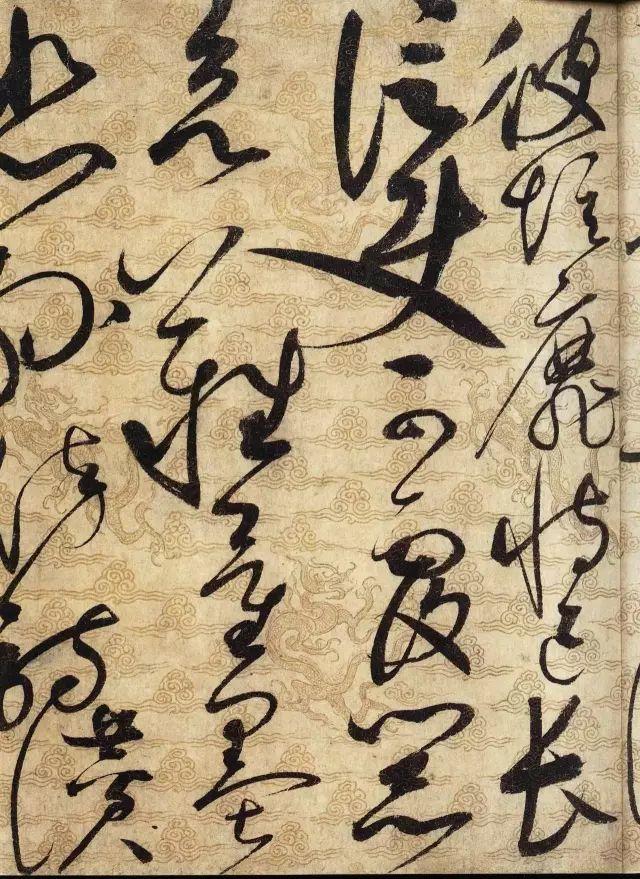 彼短靡恃己長
信使可覆器
欲難量墨
悲絲染詩讚